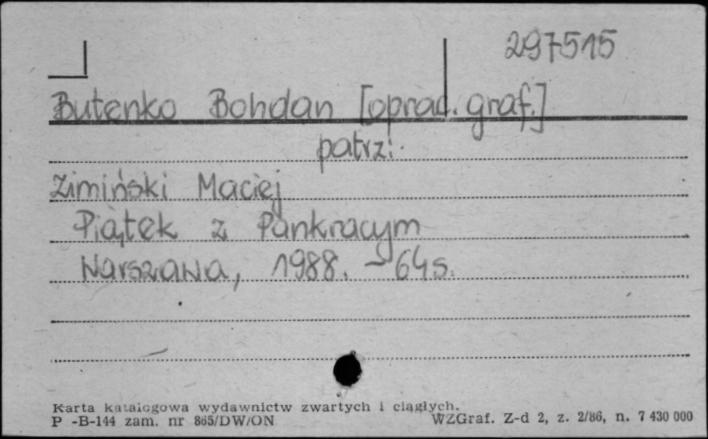 297515
Butenko Bohdan [oprac. graf.]
patrz:
Zimiński Maciej
Piątek z Pankracym
Warszawa, 1988. - 64s.
Karta katalogowa wydawnictw zwartych i ciągłych.
P -B-144 zam. nr 865/DW/ON WZGraf. Z-d 2, z. 2/86, n. 7 430 000